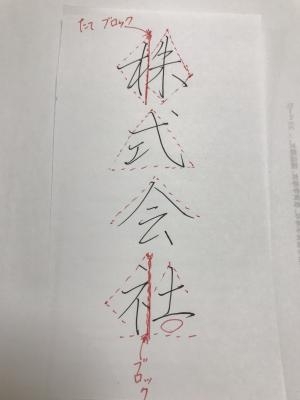 たて ブロック
株式会社
ブロック